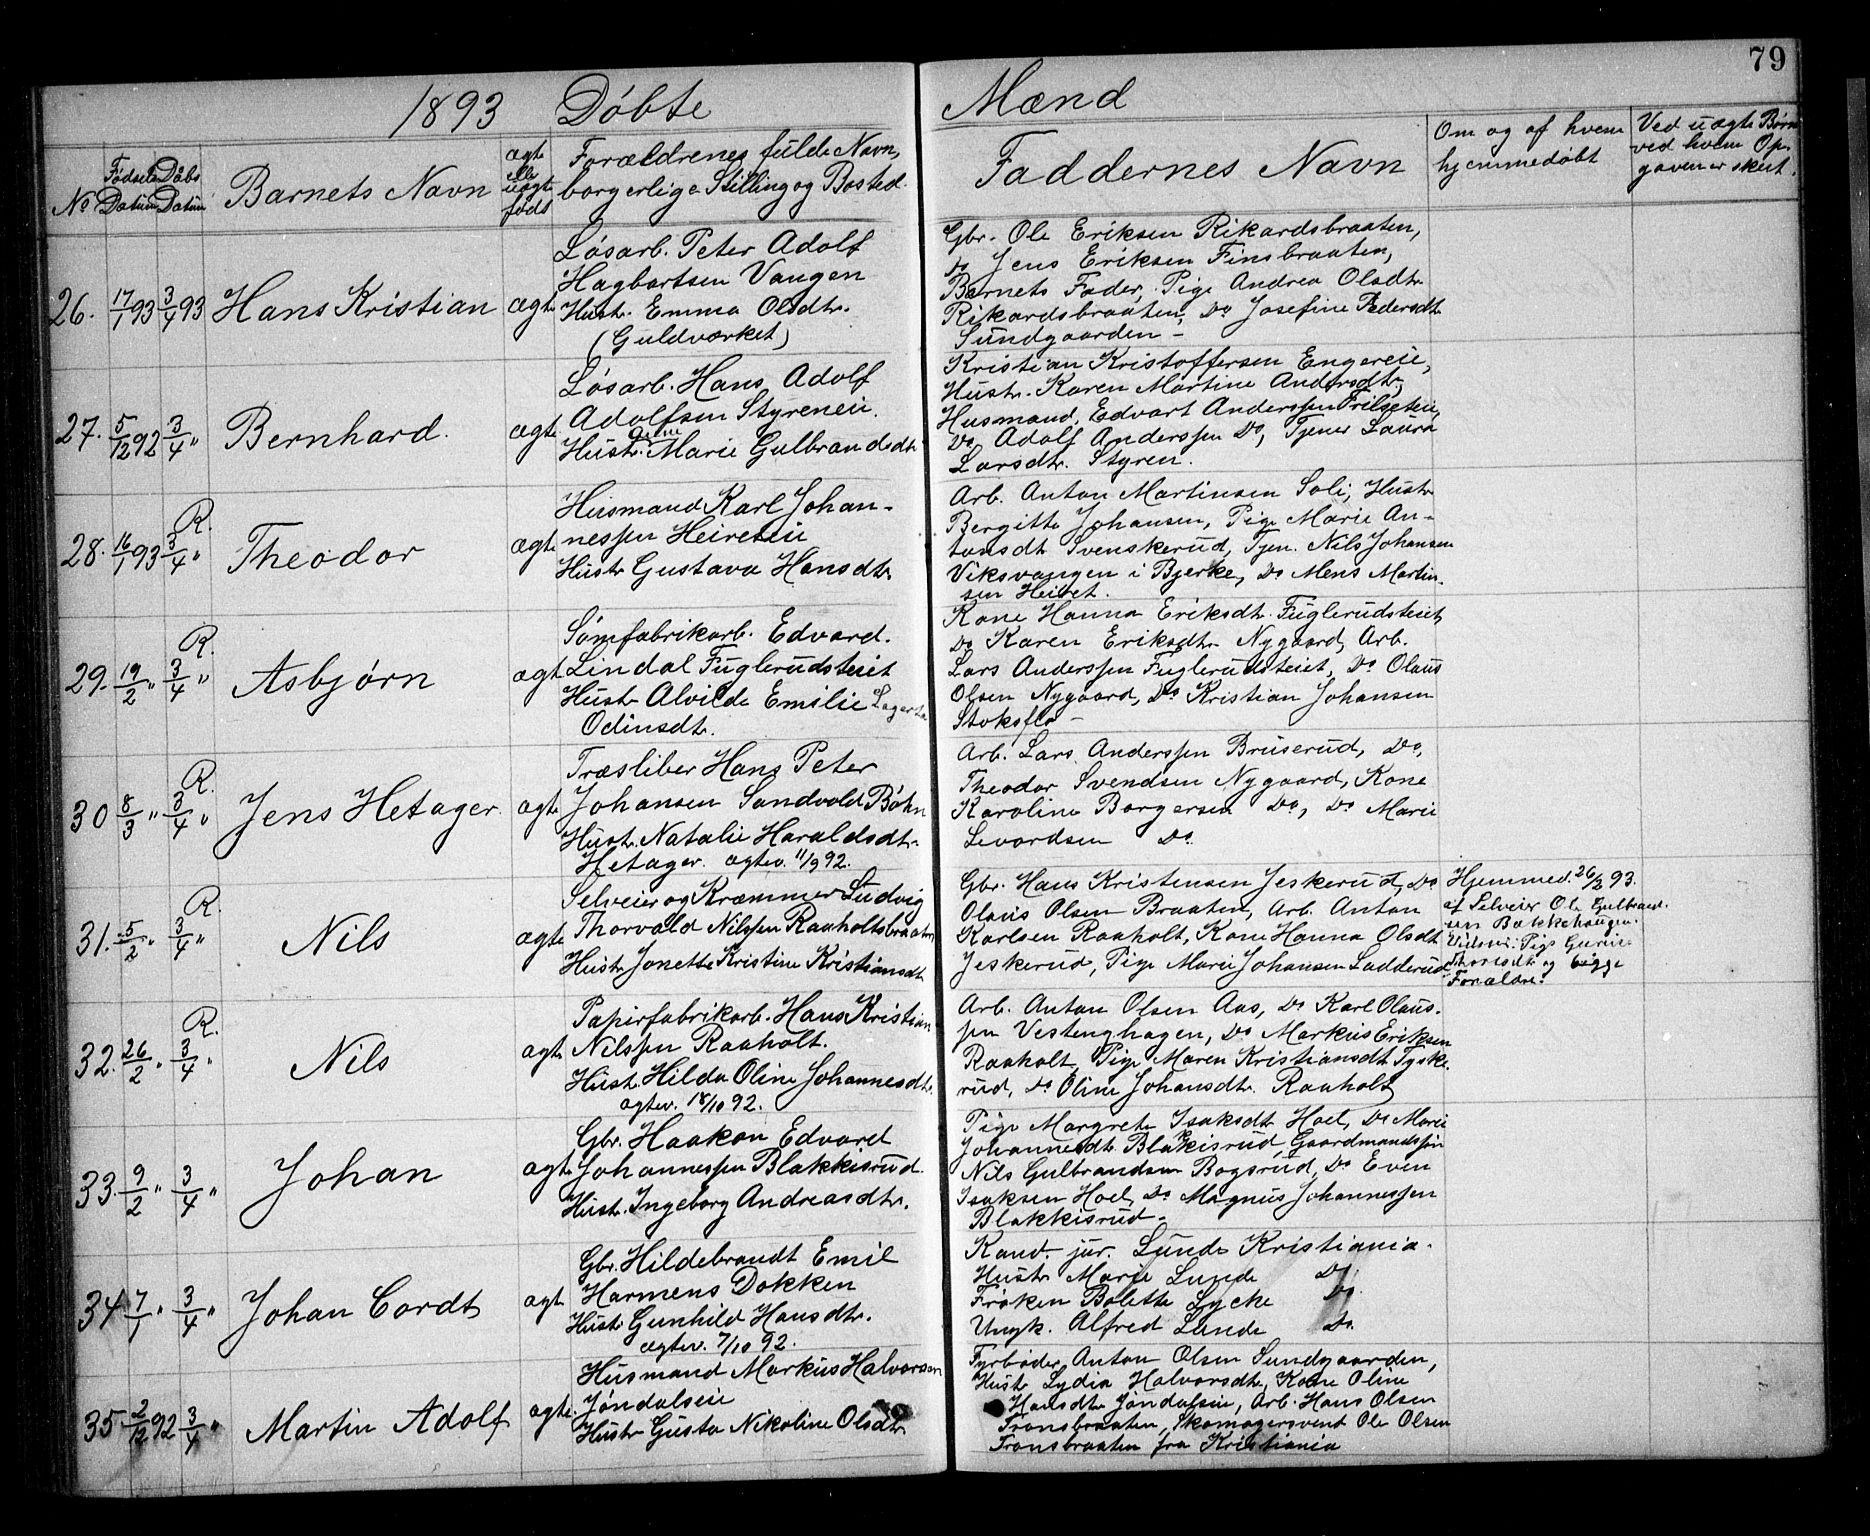 79
1893 Døbte Mænd
No
Fødsels Datum
Daabs Datum
Barnets Navn
ægte ell. uægte født
Forældrenes fulde Navn,
borgerlige Stilling og Bosted.
Faddernes Navn
Om og af hvem
hjemmedøbt
Ved uægte Børn
ved hvem Op-
gaven er skeet.
26. 17/1 93 3/4 93 Hans Kristian ægte
Løsarb. Peter Adolf
Hagbartsen Vangen
Hustr. Emma Olsdtr.
(Guldværket)
Gbr. Ole Eriksen Rikardsbraaten,
Do Jens Eriksen Finsbraaten,
Barnets Fader, Pige Andrea Olsdtr
Rikardsbraaten, Do Josefine Pedersdtr
Sundgaarden -
27. 5/12 92 3/4 " Bernhard. ægte
Løsarb. Hans Adolf
Adolfsen Styreneie.
Hustr. Marie Gulbrandsdtr
Kristian Kristoffersen Engereie,
Hustr. Karen Martine Andersdtr,
Husmand, Edvart Anderssen
Do Adolf Anderssen Do, Tjener Laura
Larsdtr. Styren.
28. 16/1 93 3/4 " R. Theodor ægte
Husmand Karl Johan-
nessen Heireteie
Hustr Gustava Hansdtr
Arb. Anton Martinsen Soli, Hustr
Bergitte Johansen, Pige Marie An-
tonsdt Svenskerud, Tjen. Nils Johansen
Viksvangen i Bjerke, Do Mens Martin-
sen Heiret.
29. 19/2 " 3/4 " R. Asbjørn ægt
Sømfabrikarb. Edvard.
Lindal Fuglerudsteiet
Hustr Alvilde Emilie Lagerta
Odinsdt.
Kone Hanna Eriksdt. Fuglerudsteiet,
Do Karen Eriksdtr Nygaard, Arb.
Lars Anderssen Fuglerudsteiet, Do Olaus
Olsen Nygaard, Do Kristian Johansen
Stoksflo -
30 8/3 " 3/4 " R. Jens Hetager. ægte
Træsliber Hans Peter
Johansen Sandvold Bøhn
Hustr. Natalie Haraldsdtr.
Hetager. ægtev. 11/9 92.
Arb. Lars Anderssen Bruserud, Do,
Theodor Svendsen Nygaard, Kone
Karoline Borgersen Do, Do Marie
Sevardsen Do.
31. 5/2 " 3/4 " R. Nils ægte
Selveier og Kræmmer Ludvig
Thorvald Nilssen Raaholtsbraaten
Hustr Jonette Kristine Kristiansdt.
Gbr. Hans Kristensen Jeskerud, Do
Olaus Olsen Braaten, Arb. Anton
Karlsen Raaholt, Kone Hanna Olsdt
Jeskerud, Pige Marie Johansen Ladderud
Hjemmed. 26/2 93.
af Selveier Ole Gulbrand-
sen Bakkehaugen.
Vidner: Pige Gurine
Thoresdt og begge
Forældre.
32. 26/2 " 3/4 " R. Nils ægt
Papirfabrikarb. Hans Kristian
Nilssen Raaholt.
Hustr. Hilda Oline Johannesdtr.
ægtev. 18/10 92.
Arb. Anton Olsen Aas, Do Karl Olaus-
sen Vestenghagen, Do Markus Eriksen
Raaholt, Pige Maren Kristiansdt Tyske-
rud, Do Oline Johansdtr. Raaholt
33. 9/2 " 3/4 " Johan ægt
Gbr. Haakon Edvard
Johannessen Blakkisrud.
Hustr. Ingeborg Andreasdtr.
Pige Margrete Isaksdt Hoel, Do Marie
Johannesdt Blakkisrud, Gaardmandssøn
Nils Gulbrandsen Bøgsrud, Do Even
Isaksen Hoel, Do Magnus Johannessen
Blakkisrud -
34 7/1 " 3/4 " Johan Cordt ægt
Gbr. Hildebrandt Emil
Harmens Dokken
Hustr Gunhild Hansdtr.
ægtev. 7/10 92.
Kand. jur. Lunde Kristiania.
Hustr Marie Lunde Do.
Frøken Bolette Lycke Do.
Ungk. Alfred Lunde Do.
35 2/12 92 3/4 " Martin Adolf ægte.
Husmand Markus Halvorsen
Jøndalseie
Hustr Gusta Nikoline Olsdtr
Fyrbøder Anton Olsen Sundgaarden,
Hustr Lydia Halvorsdtr, Kone Oline
Hansdtr Jøndalseie, Arb. Hans Olsen
Transbraaten, Skomagersvent Ole Olsen
Transbraaten fra Kristiania